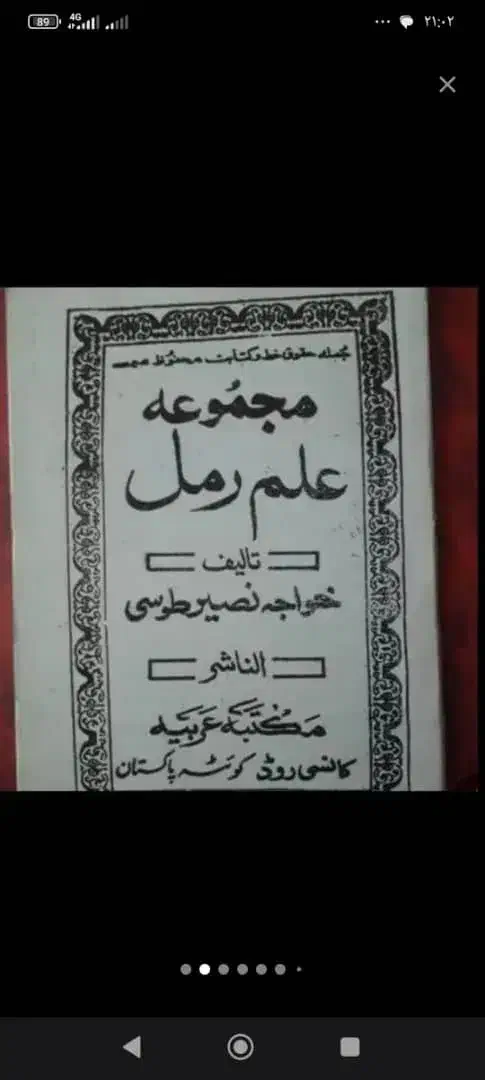 89 4G ۲۱:۰۲
جمله حقوق خط و کتابت محفوظ ہیں
مجموعه
علم رمل
تالیف
خواجه نصیر طوسی
الناشر
مکتبه عربیه
کانسی روڈ کوئٹہ پاکستان